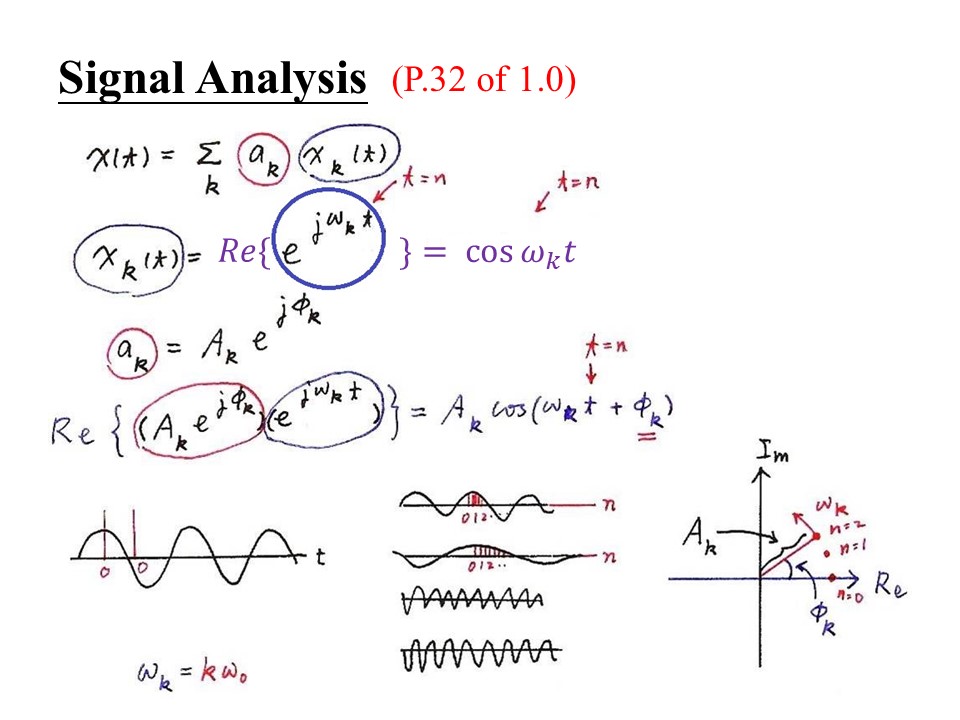 Signal Analysis (P.32 of 1.0)
x(t) = Σ_k a_k x_k(t)
t=n t=n
x_k(t) = Re{e^{jω_k t}} = cos ω_k t
a_k = A_k e^{jϕ_k}
t=n
Re{(A_k e^{jϕ_k})(e^{jω_k t})} = A_k cos(ω_k t + ϕ_k)
Im
n
012...
ω_k
n=2
A_k
n=1
t
0 0
n
012..
Re
n=0
ϕ_k
ω_k = kω_0